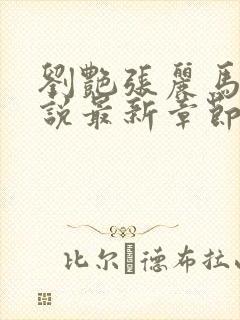 劉艷張麗馬
說最新章節
比尔·德布拉